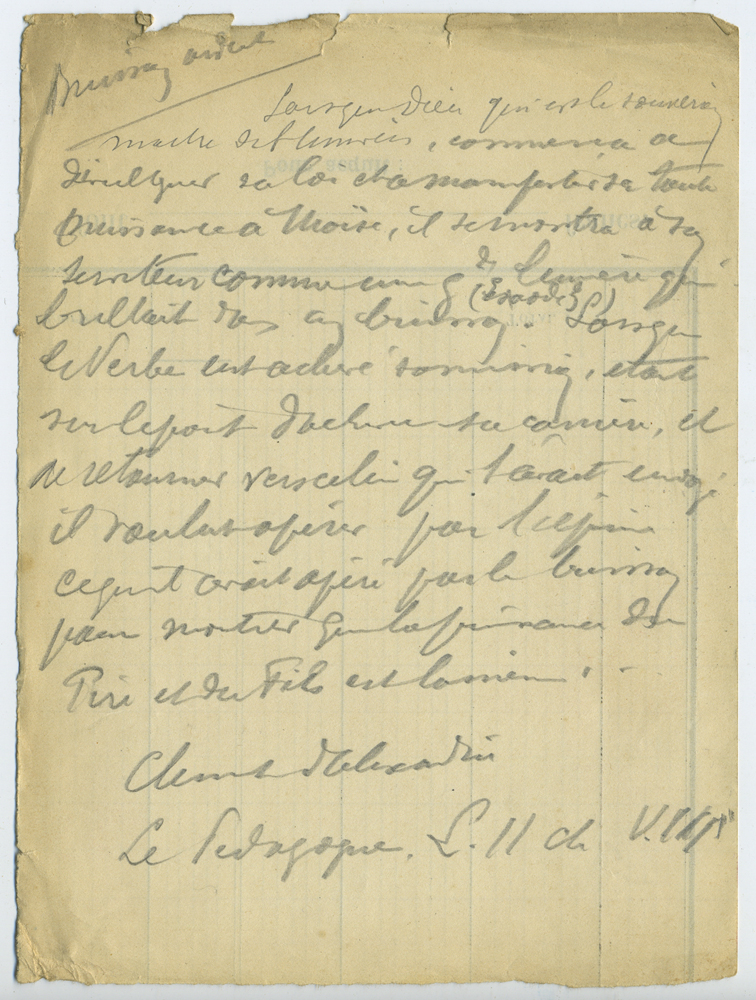 Buisson ardent
Lorsque Dieu qui est le souverain
maître des lumières, commença à
divulguer sa loi et à manifester sa toute
puissance à Moïse, il se montra à son
serviteur comme une de lumière qui
brillait dans un buisson. (Exode 3) Lorsque
le Verbe eut achevé sa mission, était
sur le point d'achever sa carrière, et
de retourner vers celui qui l'avait envoyé
il voulut opérer par l'épine
ce qu'il avait opéré par le buisson
pour montrer que la puissance du
Père et du Fils est la même.
Clément d'Alexandrie
Le Pédagogue. L. II ch VIII